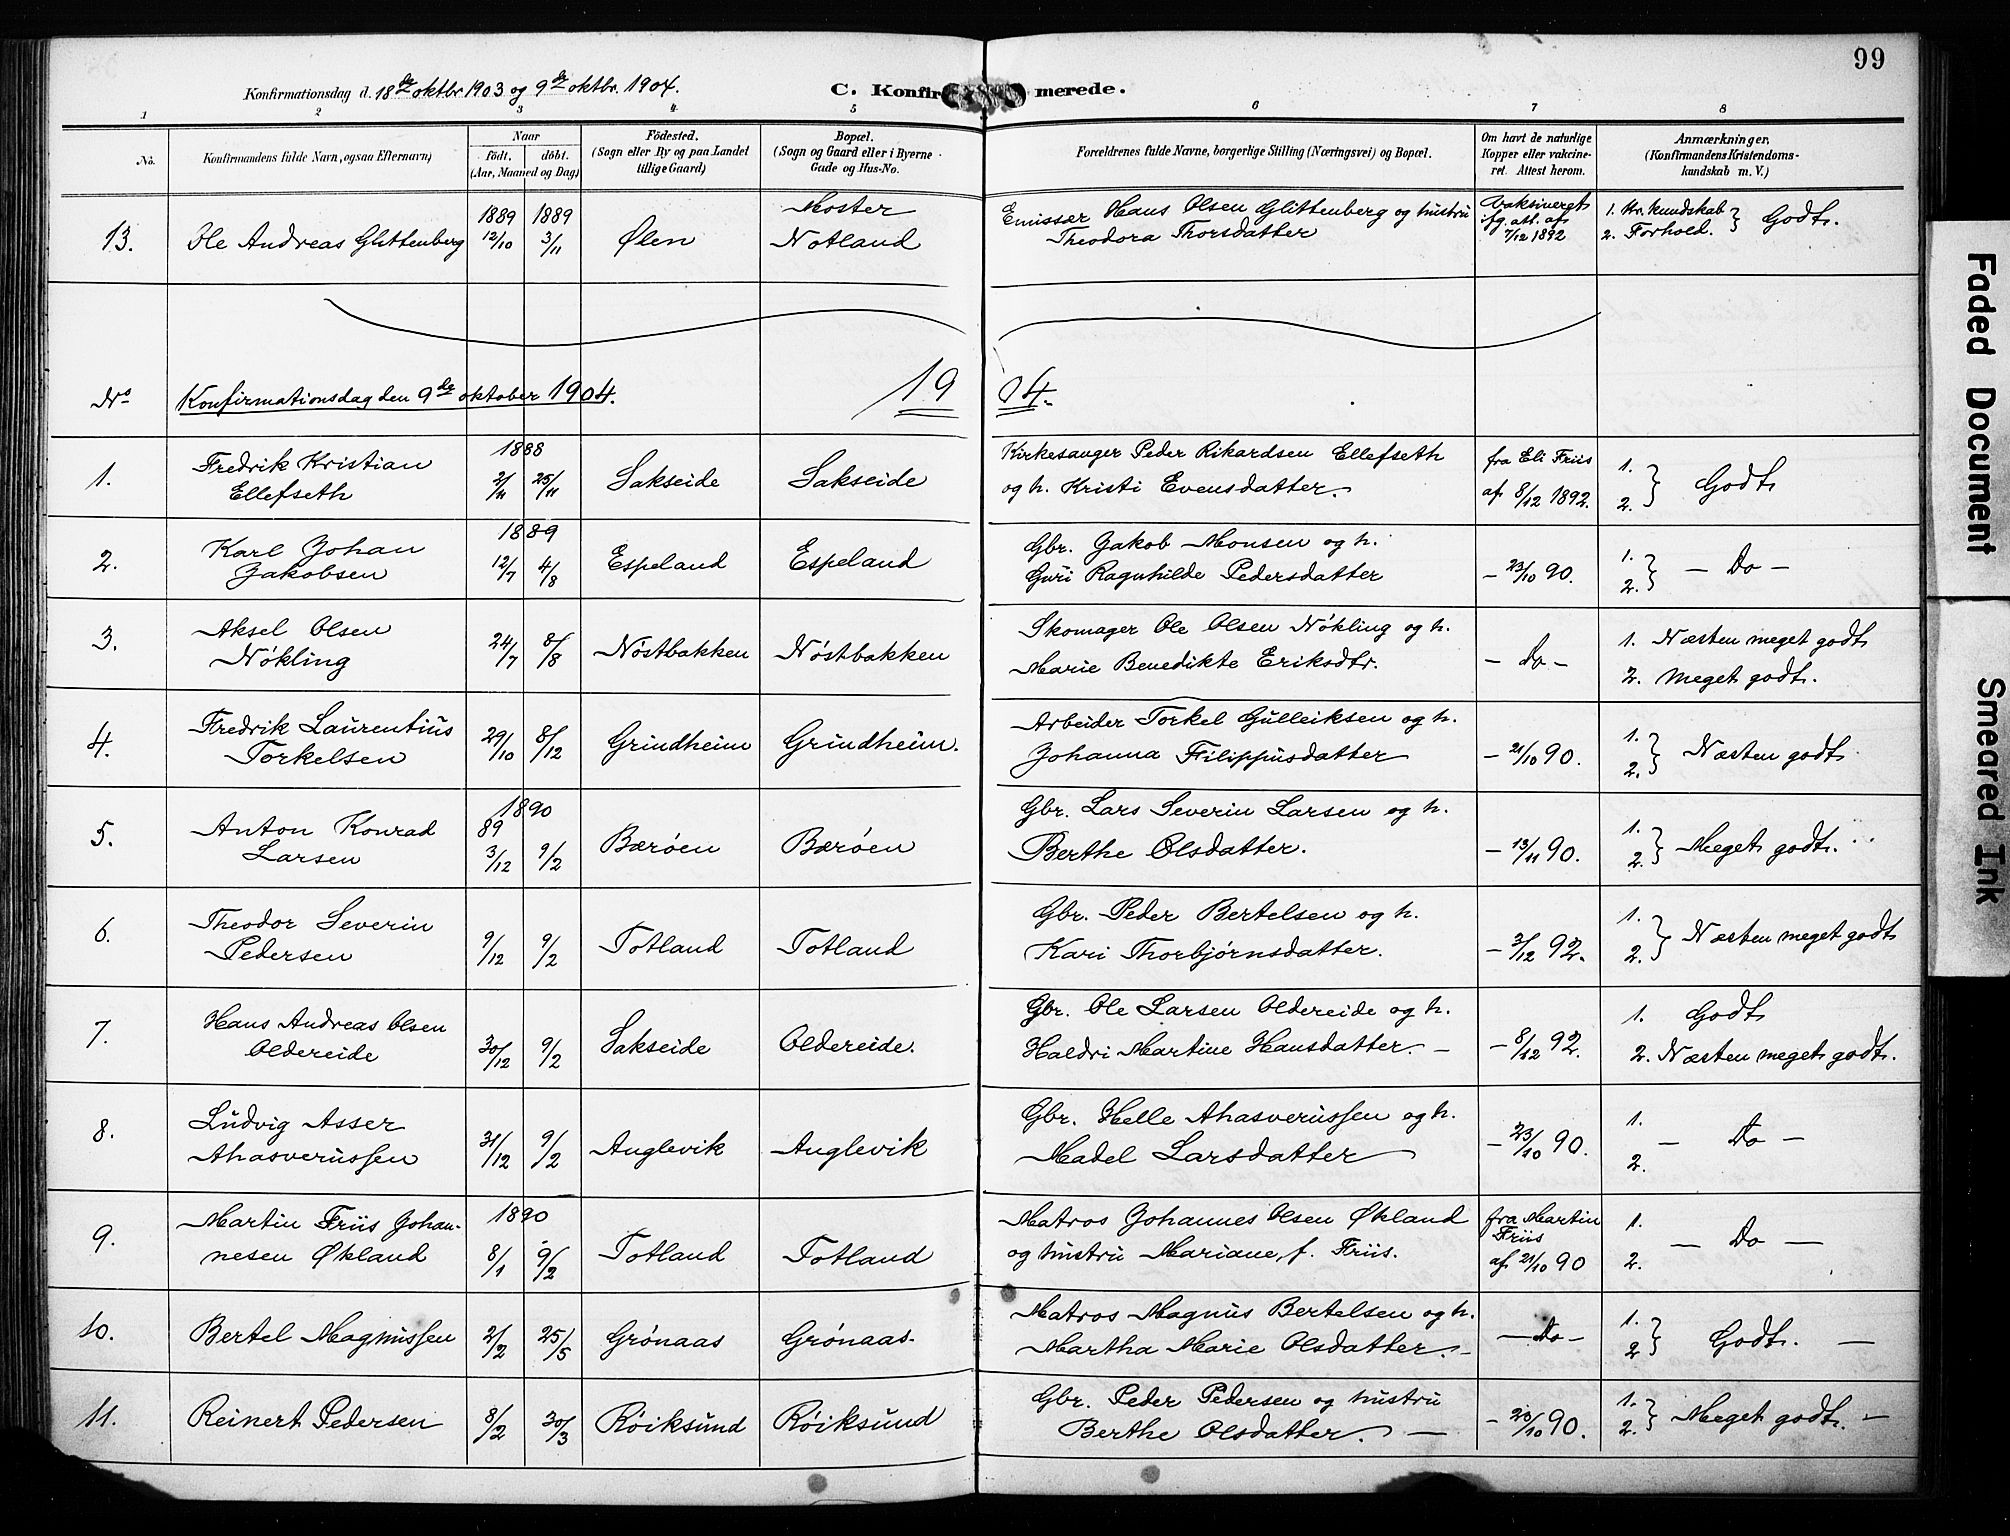 99
Konfirmationsdag d. 18de oktbr. 1903 og 9de oktbr. 1904.
C. Konfirmerede.
1 2 3 4 5 6 7 8
No. Konfirmandens fulde Navn, ogsaa Efternavn) Naar født, døbt. (Aar, Maaned og Dag) Fødested. (Sogn eller By og paa Landet tillige Gaard) Bopæl. (Sogn og Gaard eller i Byerne Gade og Hus-No. Forældrenes fulde Navne, borgerlige Stilling (Næringsvei) og Bopæl. Om havt de naturlige Kopper eller vakcineret. Attest herom. Anmærkninger, (Konfirmandens Kristendomskundskab m. V.)
13. Ole Andreas Glittenberg 1889 12/10 1889 3/11 Ølen Moster Notland Emissær Hans Olsen Glittenberg og hustru Theodora Thorsdatter Vaksineret flg. att. af 7/12 1892 1. Kr. kundskab 2. Forhold. } Godt.
No Konfirmationsdag den 9de oktober 1904. 1904.
1. Fredrik Kristian Ellefseth 1888 2/11 25/11 Sakseide Sakseide Kirkesanger Peder Rikardsen Ellefseth og h. Kristi Evensdatter. fra Eli Friis af 8/12 1892. 1. 2. } Godt
2. Karl Johan Jakobsen 1889 12/7 4/8 Espeland Espeland Gbr. Jakob Monsen og h. Guri Ragnhilde Pedersdatter – 23/10 90. 1. 2. } – Do –
3. Aksel Olsen Nökling 24/7 8/8 Nöstbakken Nöstbakken Skomager Ole Olsen Nökling og h. Marie Benedikte Eriksdtr. – Do – 1. Næsten meget godt 2. Meget godt.
4. Fredrik Laurentius Torkelsen 29/10 8/12 Grindheim Grindheim. Arbeider Torkel Gulleiksen og h. Johanna Filippusdatter – 21/10 90. 1. 2. } Næsten godt.
5. Anton Konrad Larsen 1890 89 3/12 9/2 Bæröen Bæröen Gbr. Lars Severin Larsen og h. Berthe Olsdatter. – 13/11 90. 1. 2. } Meget godt.
6. Theodor Severin Pedersen 9/12 9/2 Totland Totland Gbr. Peder Bertelsen og h. Kari Thorbjørnsdatter. – 3/12 92. 1. 2. } Næsten meget godt
7. Hans Andreas Olsen Oldereide 30/12 9/2 Sakseide Oldereide. Gbr. Ole Larsen Oldereide og h. Haldri Martine Hansdatter. – – 8/12 92. 1. Godt 2. Næsten meget godt.
8. Ludvig Asser Ahasverussen 31/12 9/2 Auglevik Auglevik Gbr. Helle Ahasverussen og h. Madel Larsdatter – 23/10 90. 1. 2. – Do –
9. Martin Friis Johannesen Økland 1890 8/1 9/2 Totland Totland Matros Johannes Olsen Økland og hustru Mariane, f. Friis. fra Martin Friis af 21/10 90 1. 2. – Do –
10. Bertel Magnussen 2/2 25/5 Grönaas Grönaas. Matros Magnus Bertelsen og h. Martha Marie Olsdatter. – – Do – 1. 2 } Godt. –
11. Reinert Pedersen 8/2 30/3 Röiksund Röiksund Gbr. Peder Pedersen og hustru Berthe Olsdatter. – – 20/10 90. 1. 2. } Meget godt. –
Faded Document
Smeared Ink